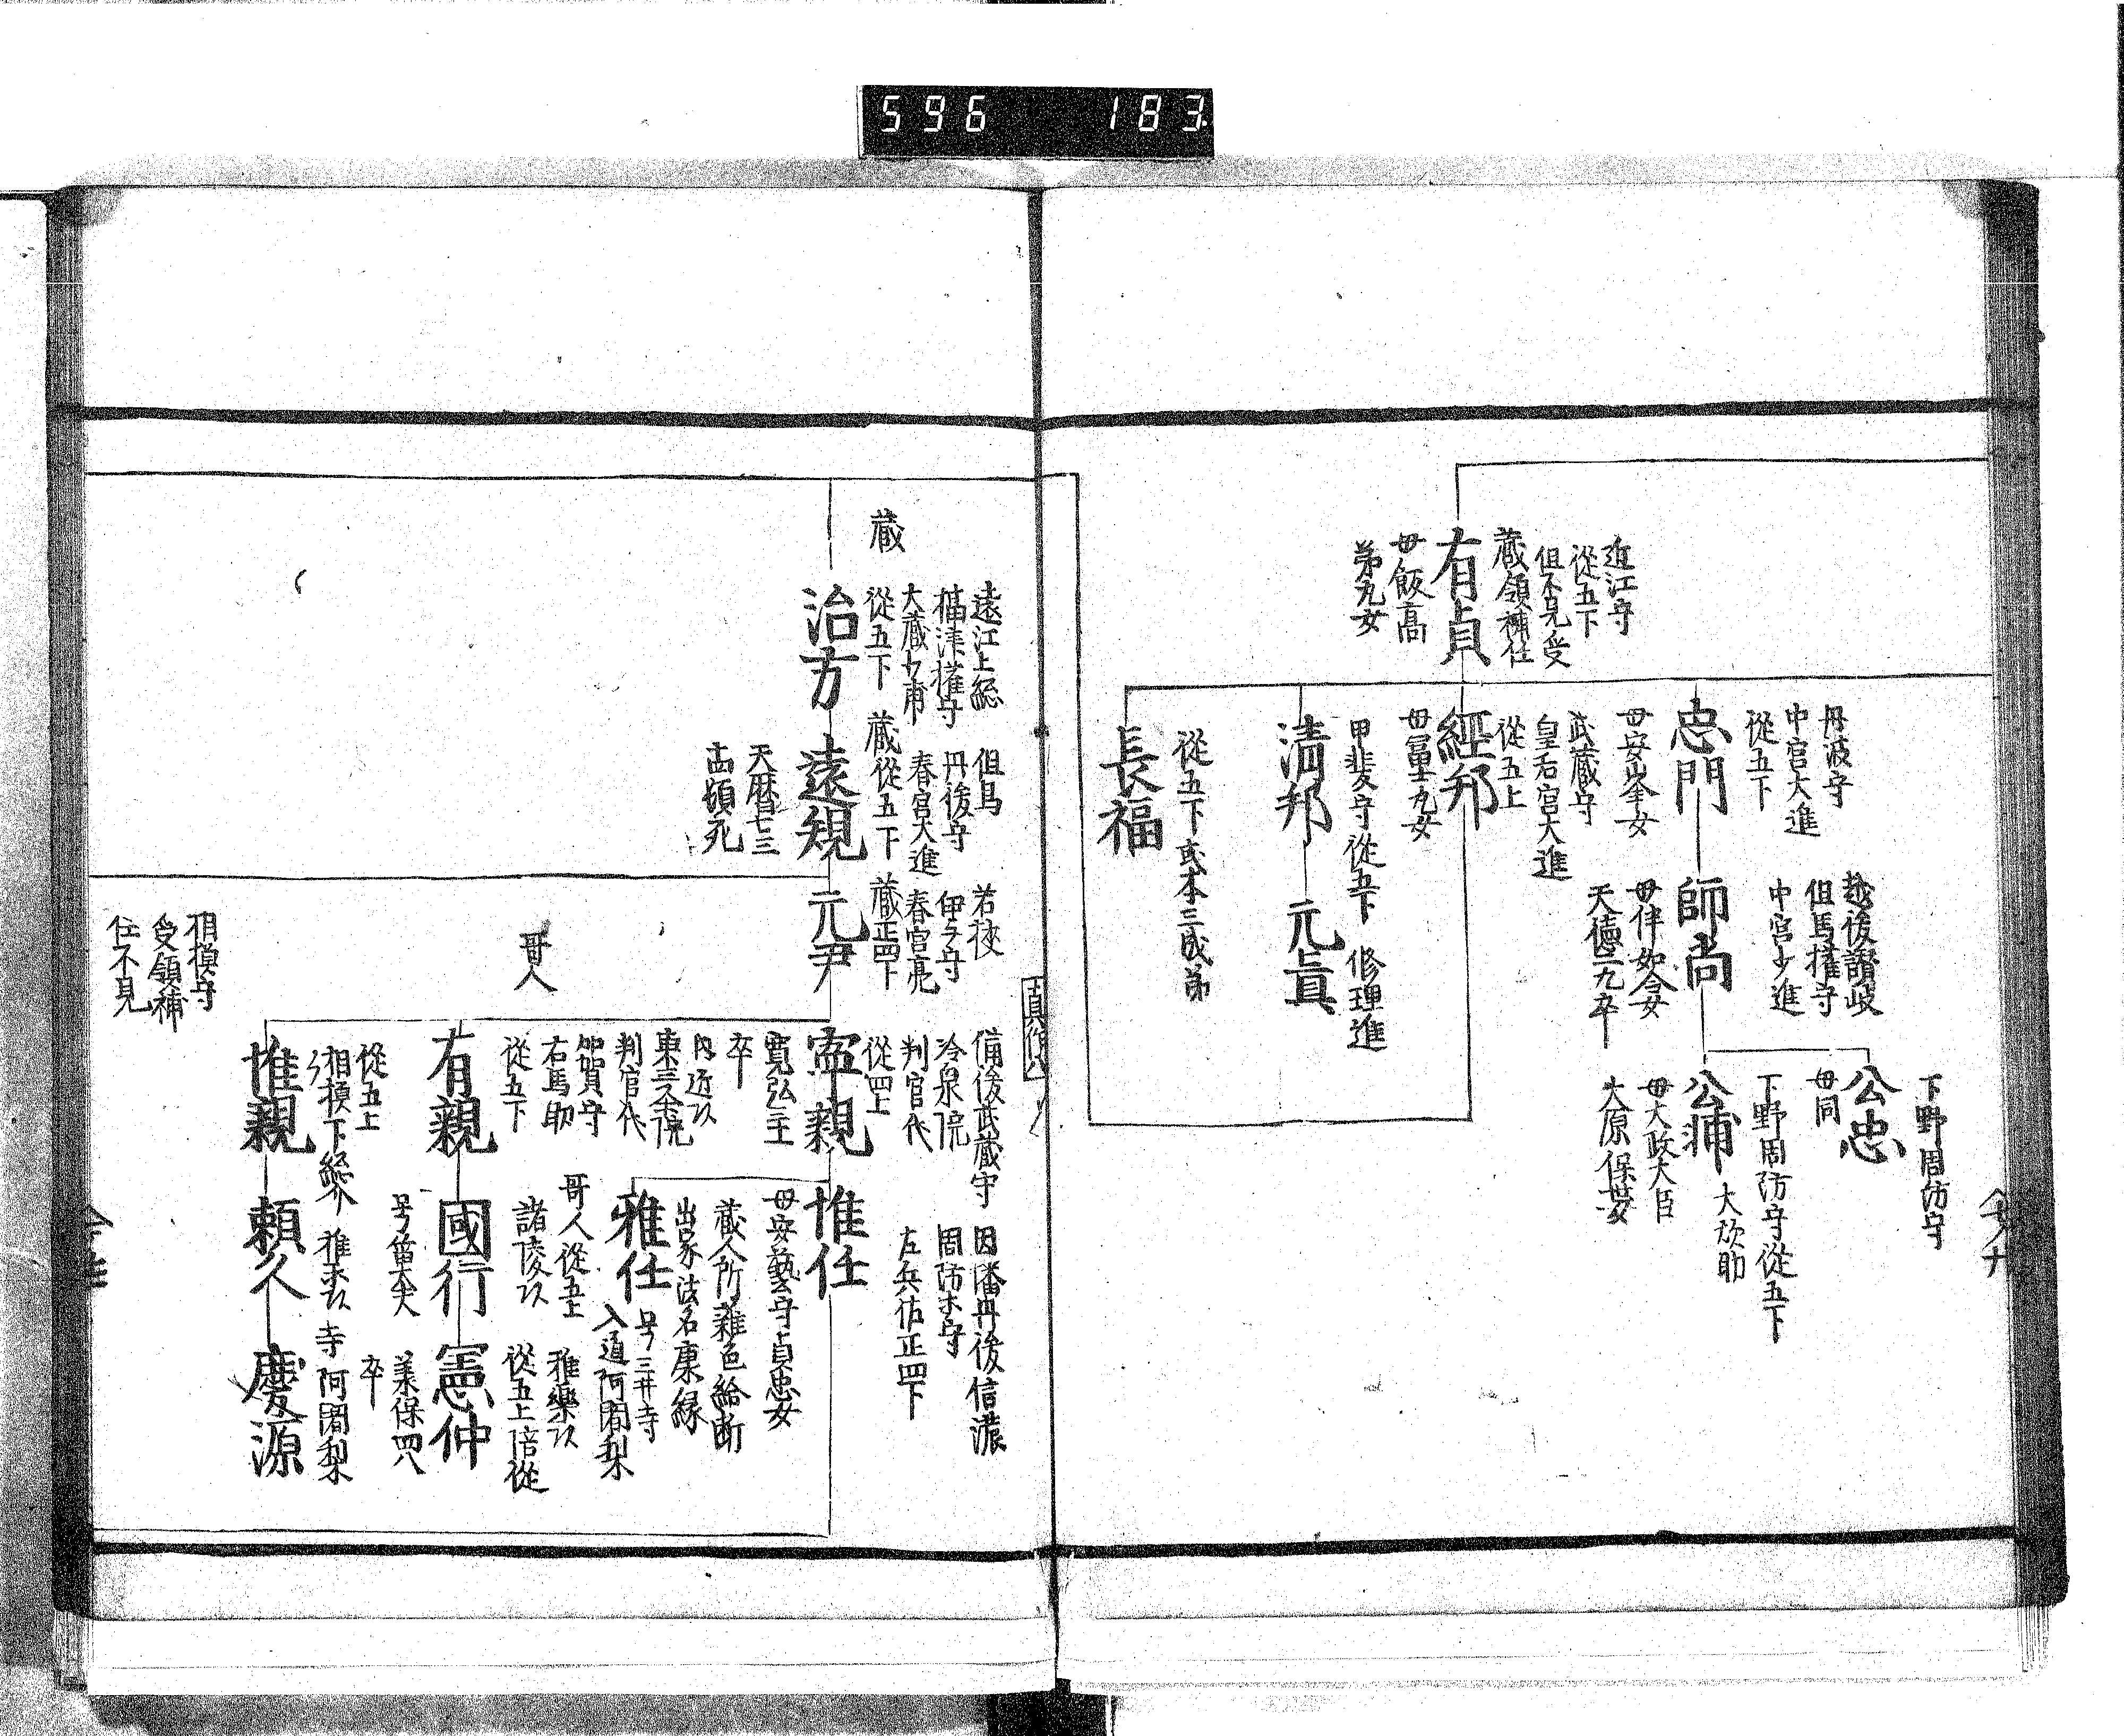 596 183
近江守
從五下
但不見受
藏領補任
有貞
母飯高
弟九女
丹波守
中宮大進
從五下
忠門
母安峯女
越後讃岐
但馬權守
中宮少進
師尚
母伴如會女
天德三九卒
下野周防守
公忠
母同
下野周防守從五下
大炊助
公蒲
母大政大臣
大原保夢
武藏守
皇后宮大進
從五上
經邦
母冨士九女
甲斐守從五下
清邦
修理進
元眞
從五下或本三成弟
長福
遠江上総
權守
大藏少甫
從五下
藏
治方
但馬
丹後守
春宮大進
藏從五下
遠規
天暦七三
頓死
若狹
伊与守
春宮亮
藏正四下
元尹
備後武藏守
冷泉院
判官代
從四上
寧親
寛弘三
卒
因幡丹後信濃
周防木守
左兵佐正四下
惟任
母安藝守貞忠女
藏人所雜色給断
出家法名康縁
雅任
号三井寺
入道阿闍梨
東三条院
判官代
加賀守
右馬助
從五下
哥人
有親
哥人從五上
諸陵以
國行
号
雅樂以
從五上陪從
憲仲
美保四八
卒
從五上
相摸下総介
惟親
雅樂以
頼久
寺阿闍梨
慶源
相摸守
受領補
任不見